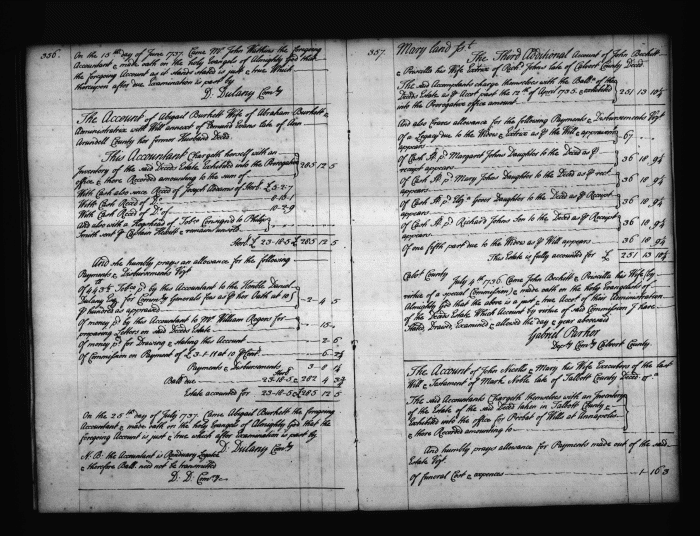 336.
On the 15th day of June 1737. Came Mr John Watkins the foregoing
Accountant & made oath on the holy Evangels of Almighty God that
the foregoing Account as it stands stated is just & true Which
thereupon after due Examination is past by
D. Dulany Comry
The Account of Abigail Burkett Wife of Abraham Burkett
Administratrix with Will annext of Edmund Evans late of Ann
Arundell County her former Husband Deced
This Accountant Chargeth herself with an
Inventory of the said Deceds Estate Exhibited into the Prerogative
office, & there Recorded amounting to the sum of 205 12 5
With Cash also since Reced of Joseph
With Cash Reced of Do
With Cash Reced of Do of 0-2-9
And also with a Hogshead of Tobo Consigned to Philip
Smith sent & Captain & remains unsold
Sterl. £ 23-18-5 £ 205 12 5
And she humbly prays an allowance for the following
Payments & Disbursements Vizt
Of 443½ Tobo pd by this Accountant to the Honble Daniel
Dulany Esq for Comry Generals fees as p her Oath at 10 p
hundred as appraised 2 4 5
Of money pd by this Accountant to Mr William Rogers for
preparing Letters on said Deceds Estate 15
Of money pd for Drawing & Stating this Account 2 6
Of Commission on Payment of £ 3-1-11 at 10 p Cent 6 2½
Payments & Disbursements 3 8 1½
Ball due Sterl 23-18-5 & 202 4 3½
Estate accounted for 23-18-5 £ 205 12 5
On the 25th day of July 1737. Came Abigail Burkett the foregoing
Accountant & made oath on the holy Evangels of Almighty God that the
foregoing Account is just & true, which after Examination is past by
D. Dulany Comry
N. B. the Accountant is Residuary Legatee
& therefore Ball need not be transmitted
D. D. Comry
337.
Maryland Sst
The Third Additional Account of John Beckett
& Priscilla his Wife Extrix of Richd Johns late of Calvert County Deced
The said Accountants charge themselves with the Ballce of the
Deceds Estate as p Accot past the 12th of April 1735. & exhibited
into the Prerogative office amount 251 13 10½
And also Craves allowance for the following Payments & Disbursements Vizt
Of a Legacy due to the Widow & Extrix as p the Will appears 67
Of Cash &c pd Margaret Johns Daughter to the Deced as p
receipt appears 36 18 9¼
Of Cash &c pd Mary Johns Daughter to the Deced as p rect
appears 36 18 9¼
Of Cash &c pd Daughter to the Deced as p Receipt
appears 36 18 9¼
Of Cash &c pd Richard Johns Son to the Deced as p Receipt
appears 36 18 9¼
Of one fifth part due to the Widow as p Will appears 36 18 9¼
This Estate is fully accounted for £ 251 13 10½
Calvt County
July 4th 1736. Came John Beckett & Priscilla his Wife by
virtue of a special Commission, & made oath on the holy Evangels of
Almighty God that the above is a just & true Accot of their Administration
of the Deceds Estate Which Account by virtue of said Commission I have
Stated, Drawd, Examined & allowed the day & year abovesaid
Gabriel Parker
Depty Comry Calvert County
The Account of John Nicols & Mary his Wife Executrix of the last
Will & Testament of Mark Noble late of Talbott County Deced
The said Accountants Chargeth themselves with an Inventory
of the Estate of the said Deced taken in Talbott County &
Exhibited into the office for Probat of Wills at Annapolis
& there Recorded amounting to
And humbly prays allowance for Payments made out of the said
Estate Vizt
Of funeral Cost & expences 1 16 3